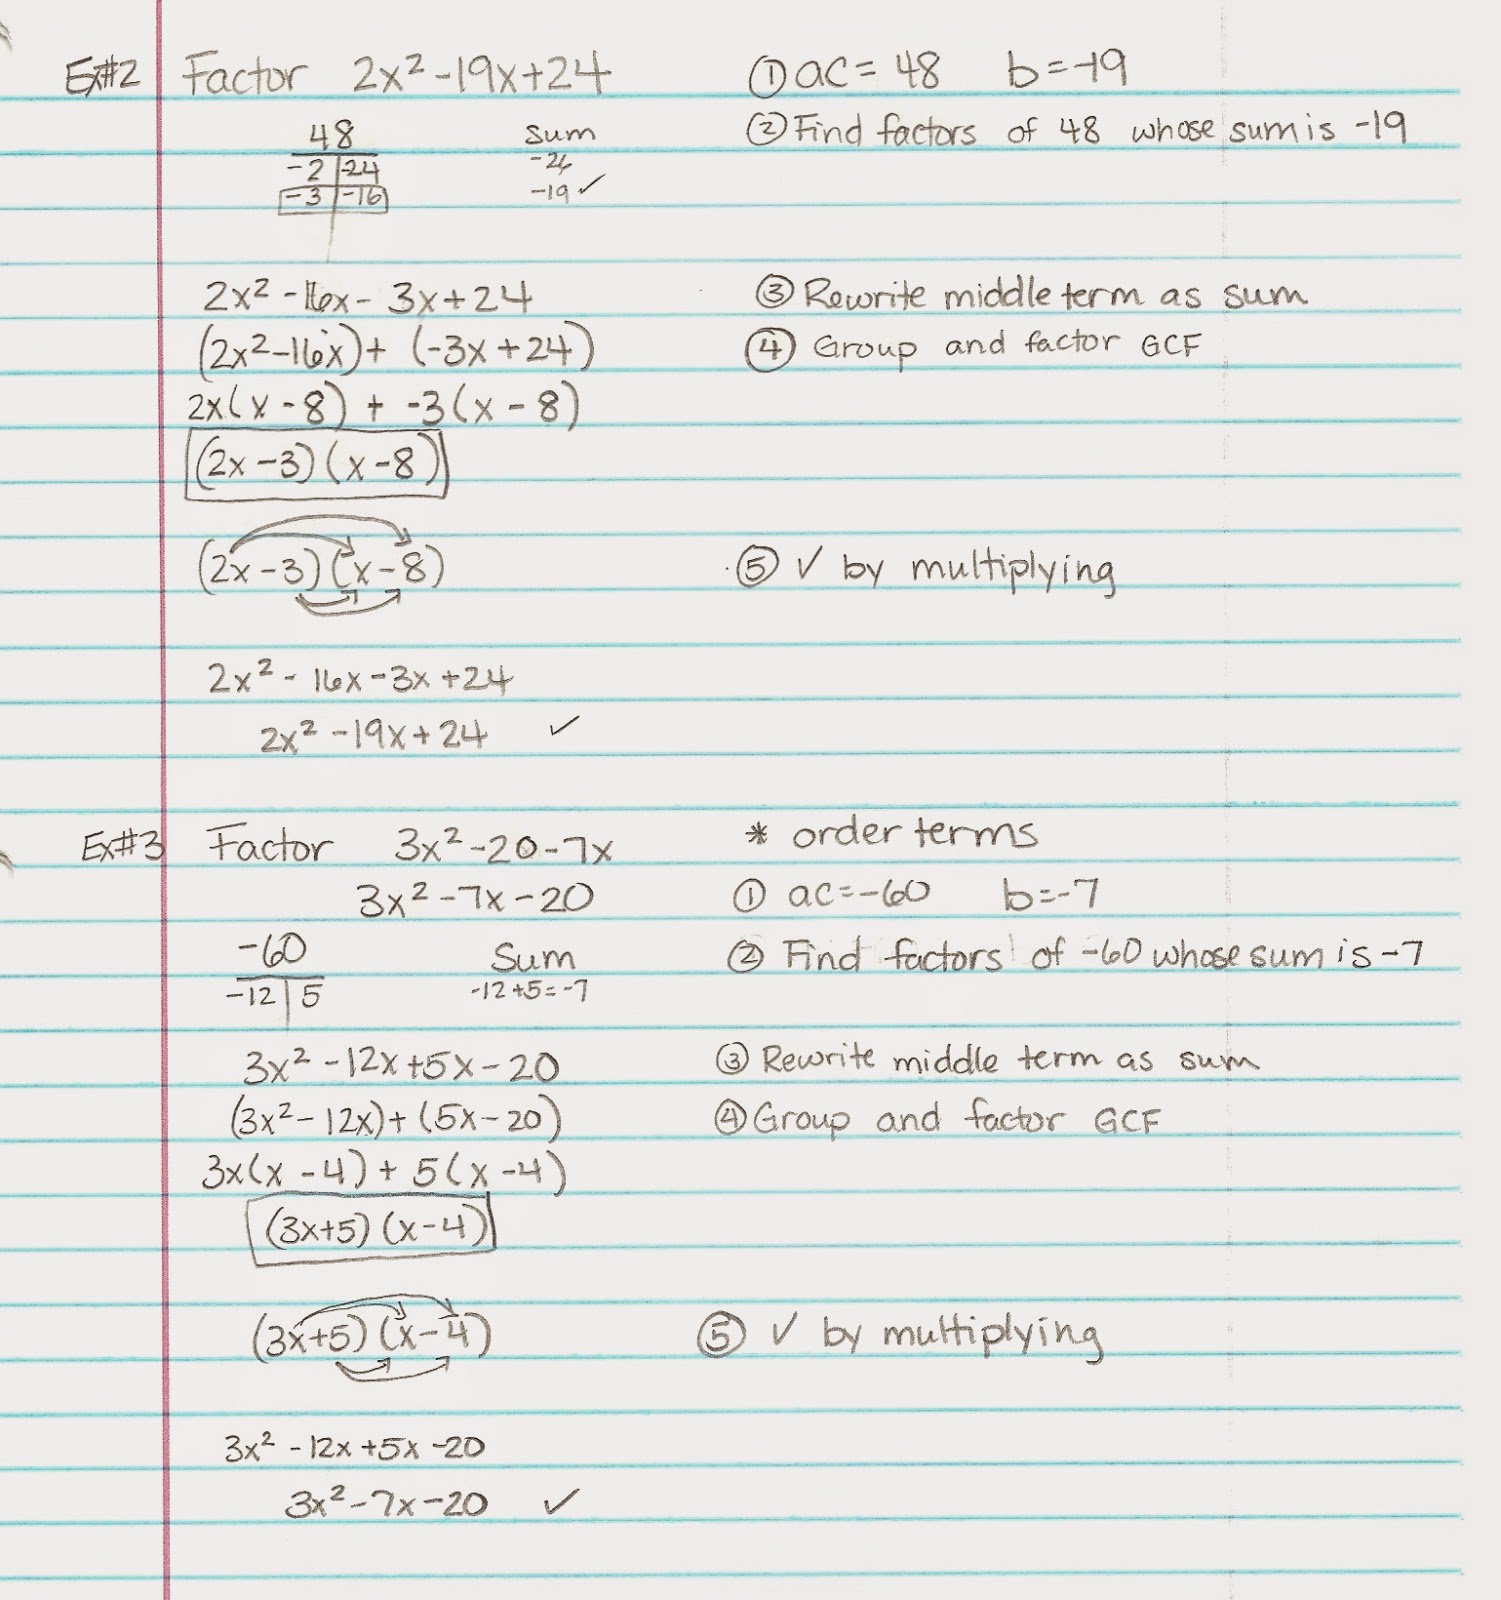 Ex#2 Factor 2x² -19x+24 ① ac = 48 b = -19
48 Sum ② Find factors of 48 whose sum is -19
-2 | -24 -26
-3 | -16 -19 ✓
2x² - 16x - 3x + 24 ③ Rewrite middle term as sum
(2x² - 16x) + (-3x + 24) ④ Group and factor GCF
2x(x - 8) + -3(x - 8)
(2x - 3)(x - 8)
(2x - 3)(x - 8) ⑤ ✓ by multiplying
2x² - 16x - 3x + 24
2x² - 19x + 24 ✓
Ex#3 Factor 3x² - 20 - 7x * order terms
3x² - 7x - 20 ① ac = -60 b = -7
-60 Sum ② Find factors of -60 whose sum is -7
-12 | 5 -12 + 5 = -7
3x² - 12x + 5x - 20 ③ Rewrite middle term as sum
(3x² - 12x) + (5x - 20) ④ Group and factor GCF
3x(x - 4) + 5(x - 4)
(3x+5)(x-4)
(3x+5)(x-4) ⑤ ✓ by multiplying
3x² - 12x + 5x - 20
3x² - 7x - 20 ✓